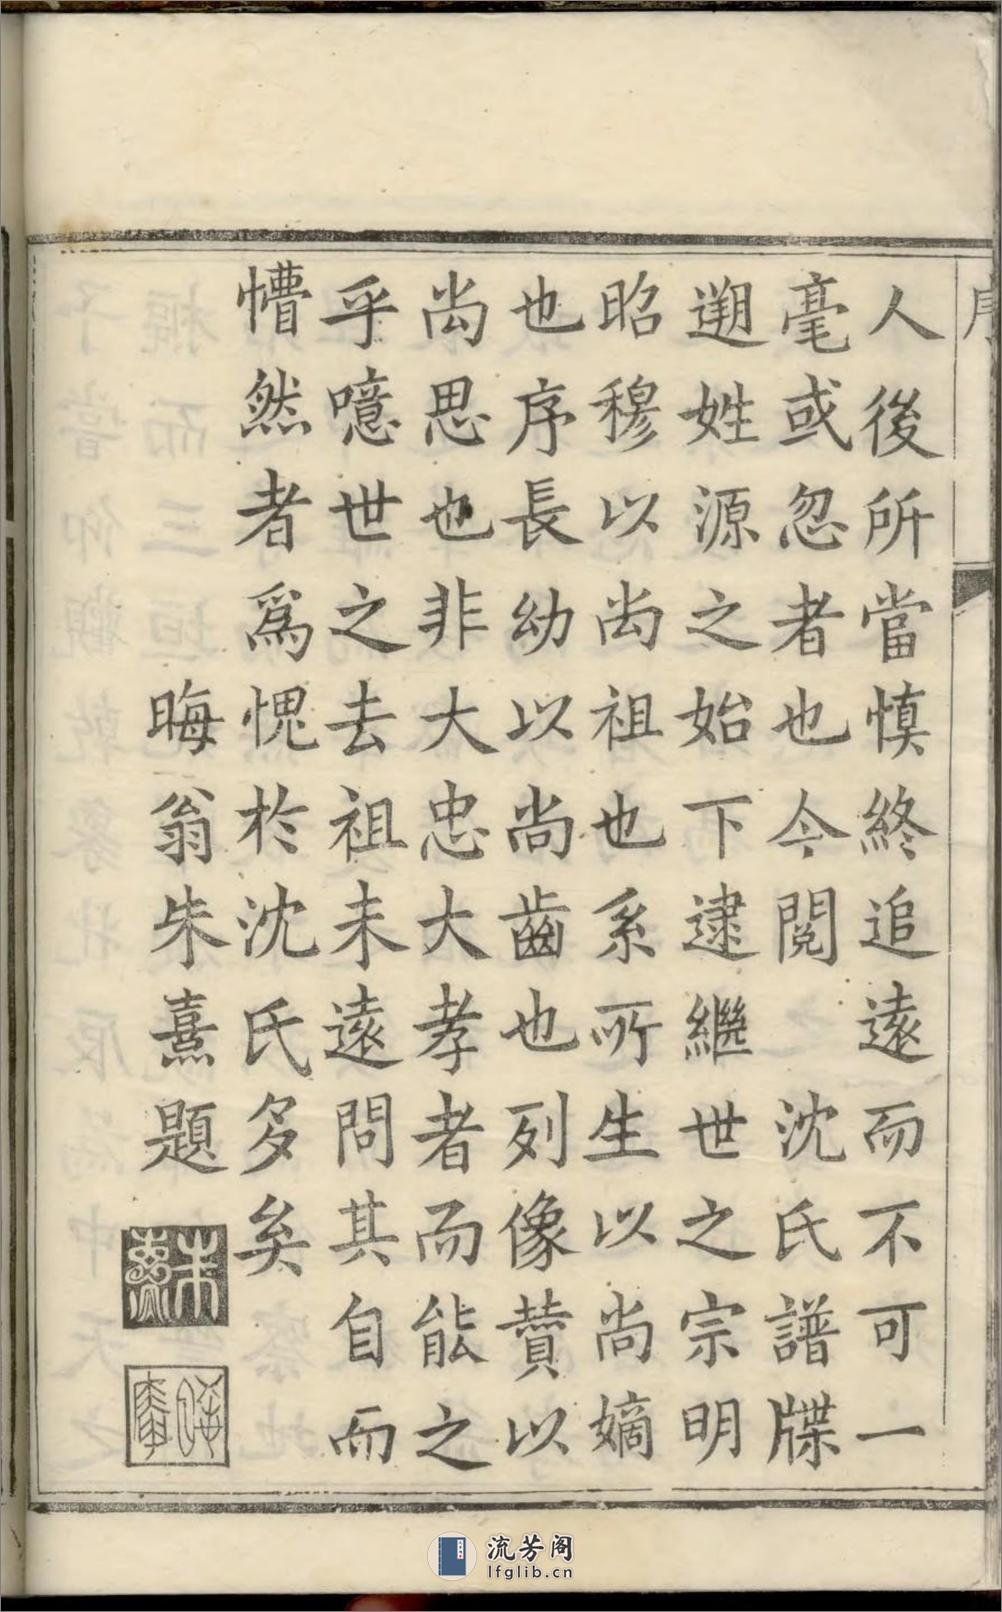 序
人後所當慎終追遠而不可一
毫或忽者也今閱 沈氏譜牒
遡姓源之始下逮繼世之宗明
昭穆以尚祖也系所生以尚嫡
也序長幼以尚齒也列像贊以
尚思也非大忠大孝者而能之
乎噫世之去祖未遠問其自而
懵然者爲愧於沈氏多矣
晦翁朱熹題
朱熹
流芳阁
lfglib.cn